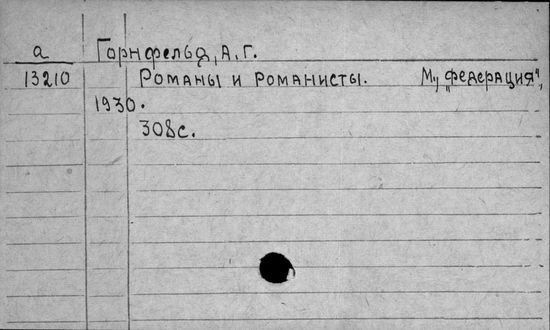 а Горнфельд, А. Г.
13210 Романы и романисты. М., „Федерация",
1930.
308с.